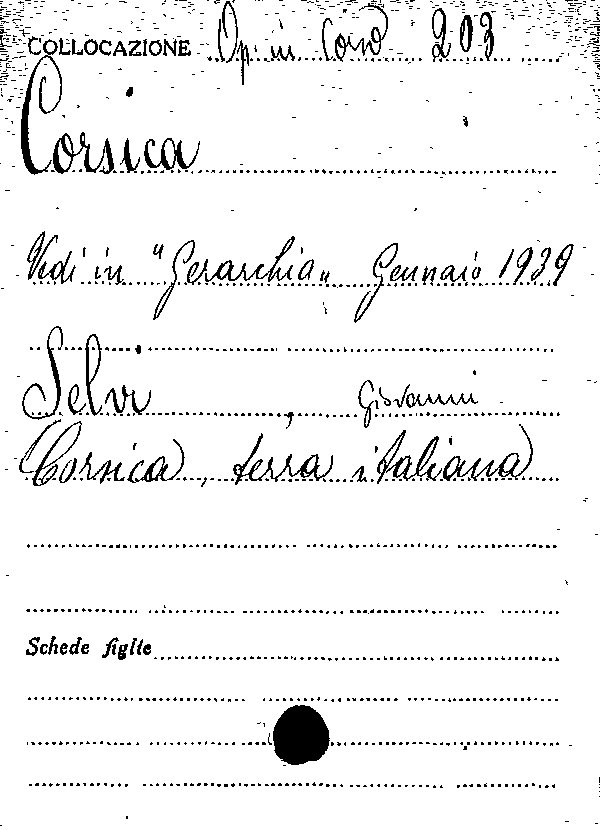 COLLOCAZIONE Op. in Corso 203
Corsica
Vedi in "Gerarchia" Gennaio 1939
Selvi, Giovanni
Corsica, terra italiana
Schede figlie